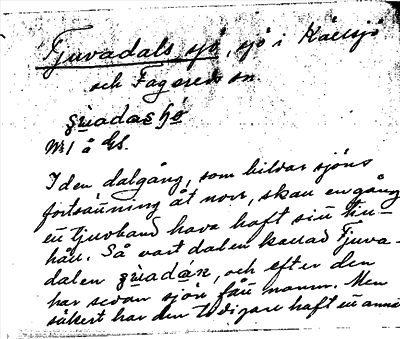 Tjuvadals sjö, sjö i Källsjö
och Fagereds sn
Nr 1 å GS.
I den dalgång, som bildar sjöns
fortsättning åt norr, skall en gång
ett tjuvband hava haft sitt till-
håll. Så vart dalen kallad Tjuva-
dalen, och efter den
har sedan sjön fått namn. Men
säkert har den tidigare haft ett anna